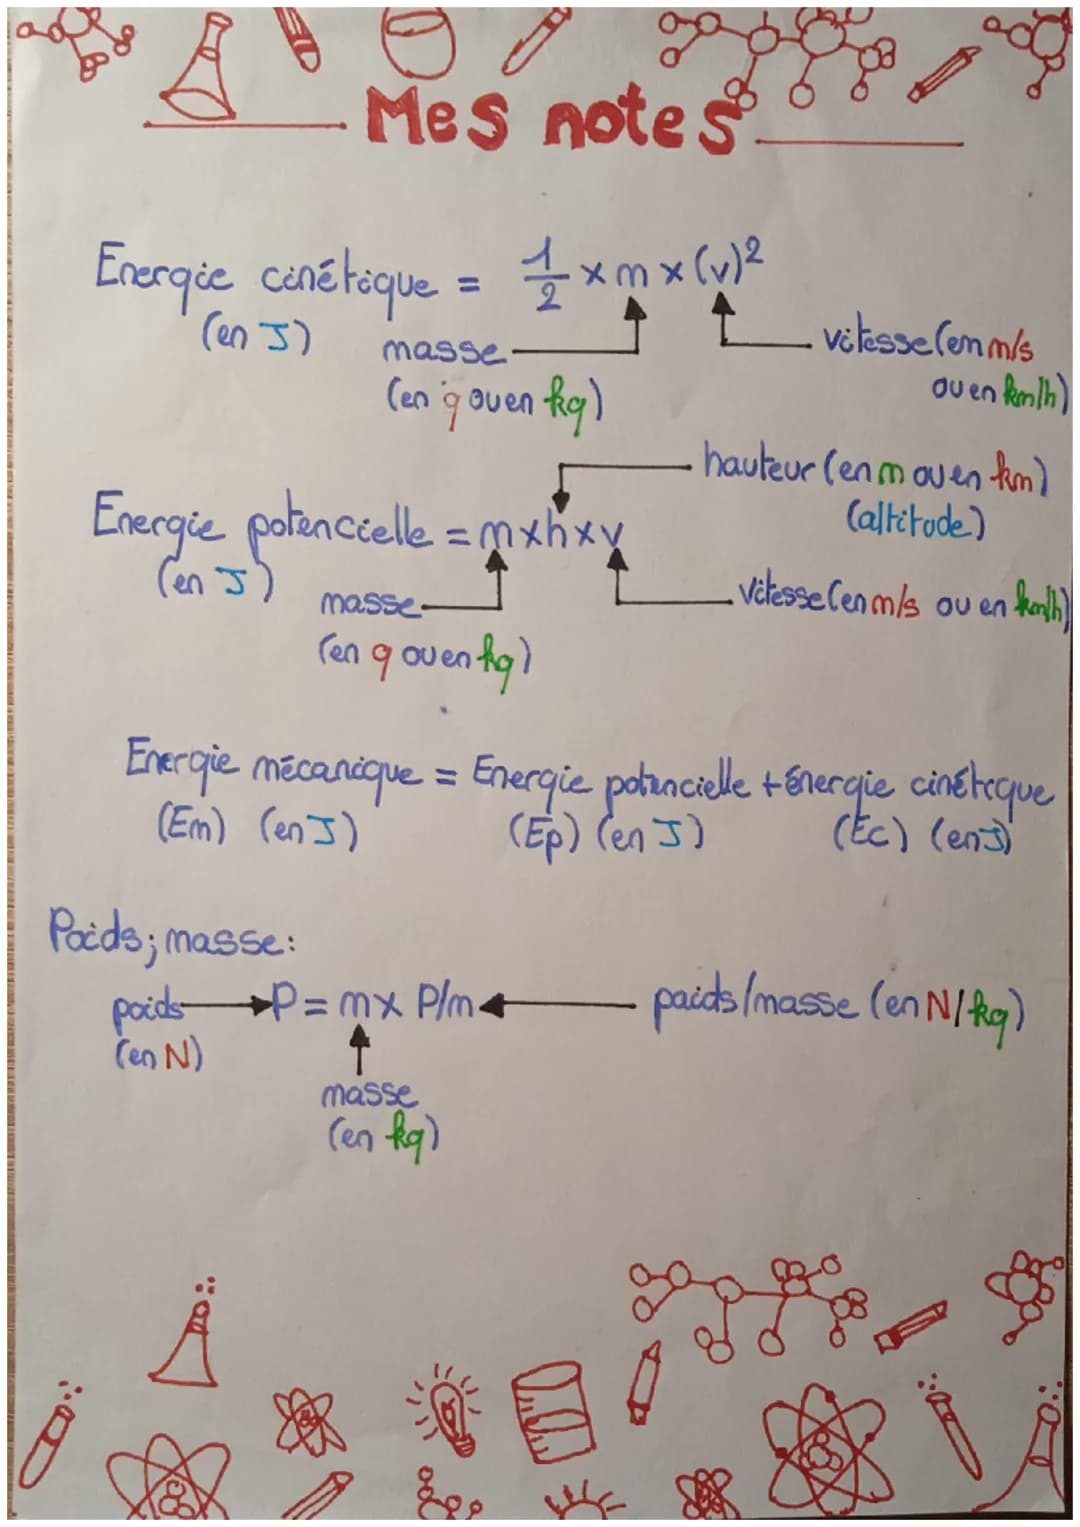 Mes notes
Energie cinétique = 1/2 x m x (v)²
(en J)
masse
(en g ou en kg)
vitesse (en m/s
ou en km/h)
hauteur (en m ou en km)
(altitude)
Energie potencielle = m x h x v
(en J)
masse
(en g ou en kg)
vitesse (en m/s ou en km/h)
Energie mécanique = Energie potencielle + énergie cinétique
(Em) (en J) (Ep) (en J) (Ec) (en J)
Poids ; masse :
poids P = m x P/m poids/masse (en N/kg)
(en N)
masse
(en kg)